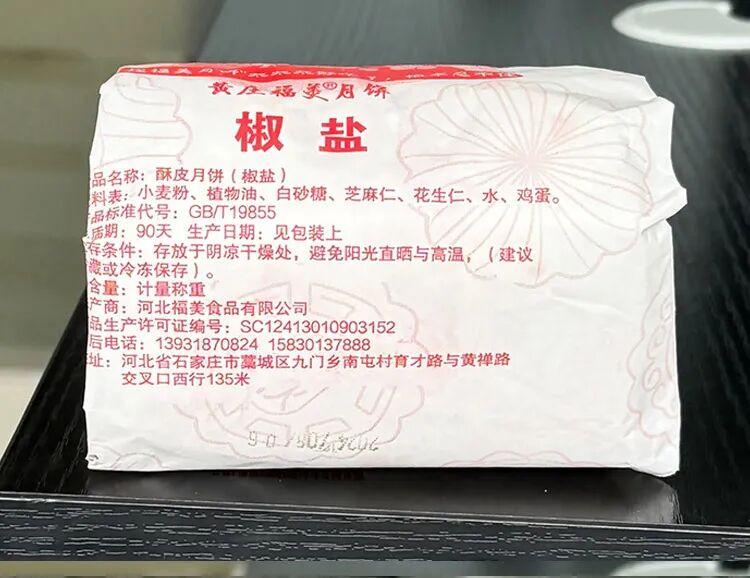 黄庄福美®月饼
椒盐
品名称：酥皮月饼（椒盐）
料表：小麦粉、植物油、白砂糖、芝麻仁、花生仁、水、鸡蛋。
品标准代号：GB/T19855
质期：90天 生产日期：见包装上
存条件：存放于阴凉干燥处，避免阳光直晒与高温，（建议
藏或冷冻保存）。
含量：计量称重
产商：河北福美食品有限公司
品生产许可证编号：SC12413010903152
后电话：13931870824 15830137888
址：河北省石家庄市藁城区九门乡南屯村育才路与黄禅路
交叉口西行135米